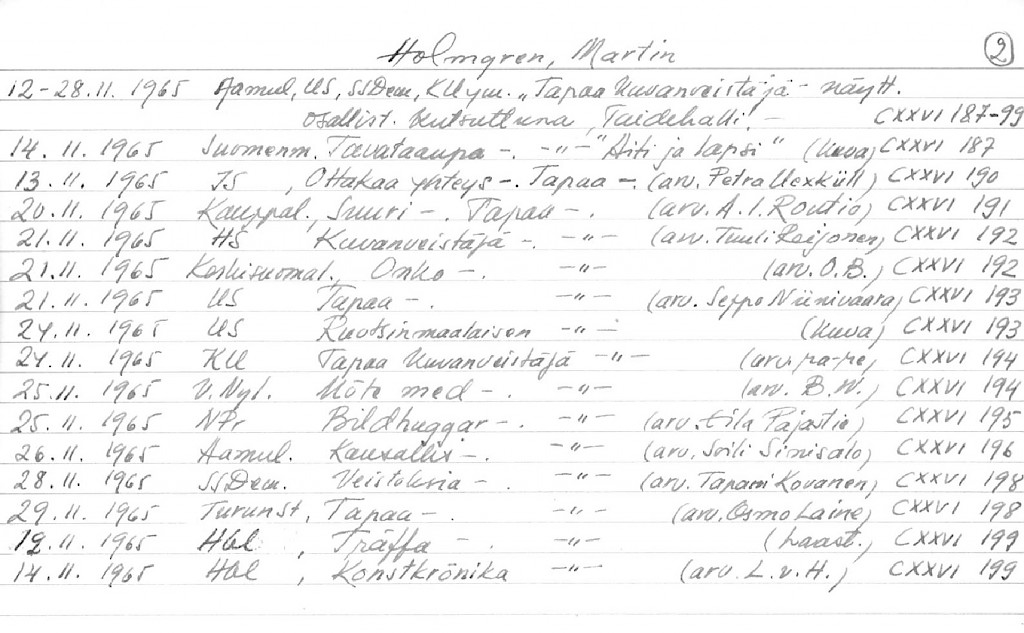 Holmgren, Martin 2
12-28.11.1965 Aamul, US, SSDem, KU ym. "Tapaa kuvanveistäjä - näytt.
osallist. kutsuttuna, Taidehalli. - CXXVI 187-99
14.11.1965 Suomenm. Tavataanpa -. -"- "Äiti ja lapsi" (kuva) CXXVI 187
13.11.1965 IS, Ottakaa yhteys -. Tapaa -. (arv. Petra Uexküll) CXXVI 190
20.11.1965 Kauppal., Suuri -. Tapaa -. (arv. A.I. Routio) CXXVI 191
21.11.1965 HS Kuvanveistäjä -. -"- (arv. Tuuli Reijonen) CXXVI 192
21.11.1965 Keskisuomal., Onko -. -"- (arv. O.B.) CXXVI 192
21.11.1965 US Tapaa -. -"- (arv. Seppo Niinivaara) CXXVI 193
24.11.1965 US Ruotsinmaalaisen -"- (kuva) CXXVI 193
24.11.1965 KU Tapaa kuvanveistäjä -"- (arv. ra-re) CXXVI 194
25.11.1965 V.Nyl. Möte med -. -"- (arv. B.W.) CXXVI 194
25.11.1965 NPr Bildhuggar -. -"- (arv. Eila Pajastie) CXXVI 195
26.11.1965 Aamul. -. -"- (arv. Soili Sinisalo) CXXVI 196
28.11.1965 SSDem. Veistoksia -. -"- (arv. Tapani Kovanen) CXXVI 198
29.11.1965 TurunSt, Tapaa -. -"- (arv. Osmo Laine) CXXVI 198
12.11.1965 Hbl, Träffa -. -"- (haast.) CXXVI 199
14.11.1965 Hbl, Konstkrönika -"- (arv. L.v.H.) CXXVI 199